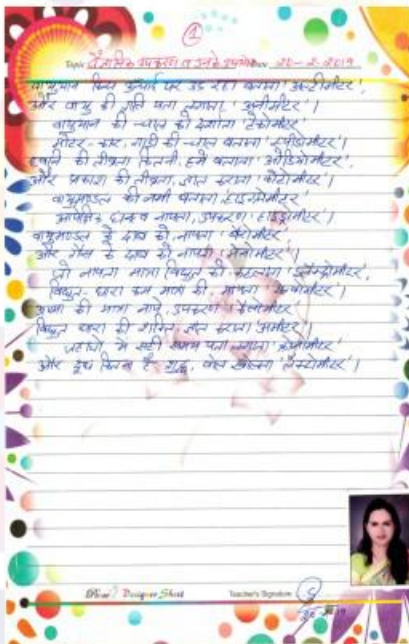 ①
Topic वैज्ञानिक उपकरण व उनके उपयोग Date 20-2-2019
वायुयान किस ऊँचाई पर उड़ रहा बतलाता 'अल्टीमीटर',
और वायु की गति पता लगाता 'अनीमोमीटर'।
वायुयान की चाल को दर्शाता 'टेकोमीटर'
मोटर-कार, गाड़ी की चाल बतलाता 'स्पीडोमीटर'।
ध्वनि की तीव्रता कितनी, हमें बताता 'ऑडियोमीटर',
और प्रकाश की तीव्रता, ज्ञात कराता 'फोटोमीटर'।
वायुमण्डल की नमी बतलाता 'हाइग्रोमीटर'
आपेक्षिक घनत्व नापता, उपकरण 'हाइड्रोमीटर'।
वायुमण्डल के दाब को, नापता 'बैरोमीटर'
और गैस के दाब को नापता 'मेनोमीटर'।
जो नापता मात्रा विद्युत की, कहलाता
विद्युत धारा कम मात्रा की, मापता
ऊष्मा की मात्रा नापे, उपकरण 'कैलोरीमीटर'
विद्युत धारा की शक्ति, ज्ञात कराता 'अमीटर'।
जहाजों में सही समय पता लगाता 'क्रोनोमीटर'
और दूध कितना है शुद्ध, पोल खोलता 'लैक्टोमीटर'।
Designer Sheet Teacher's Signature